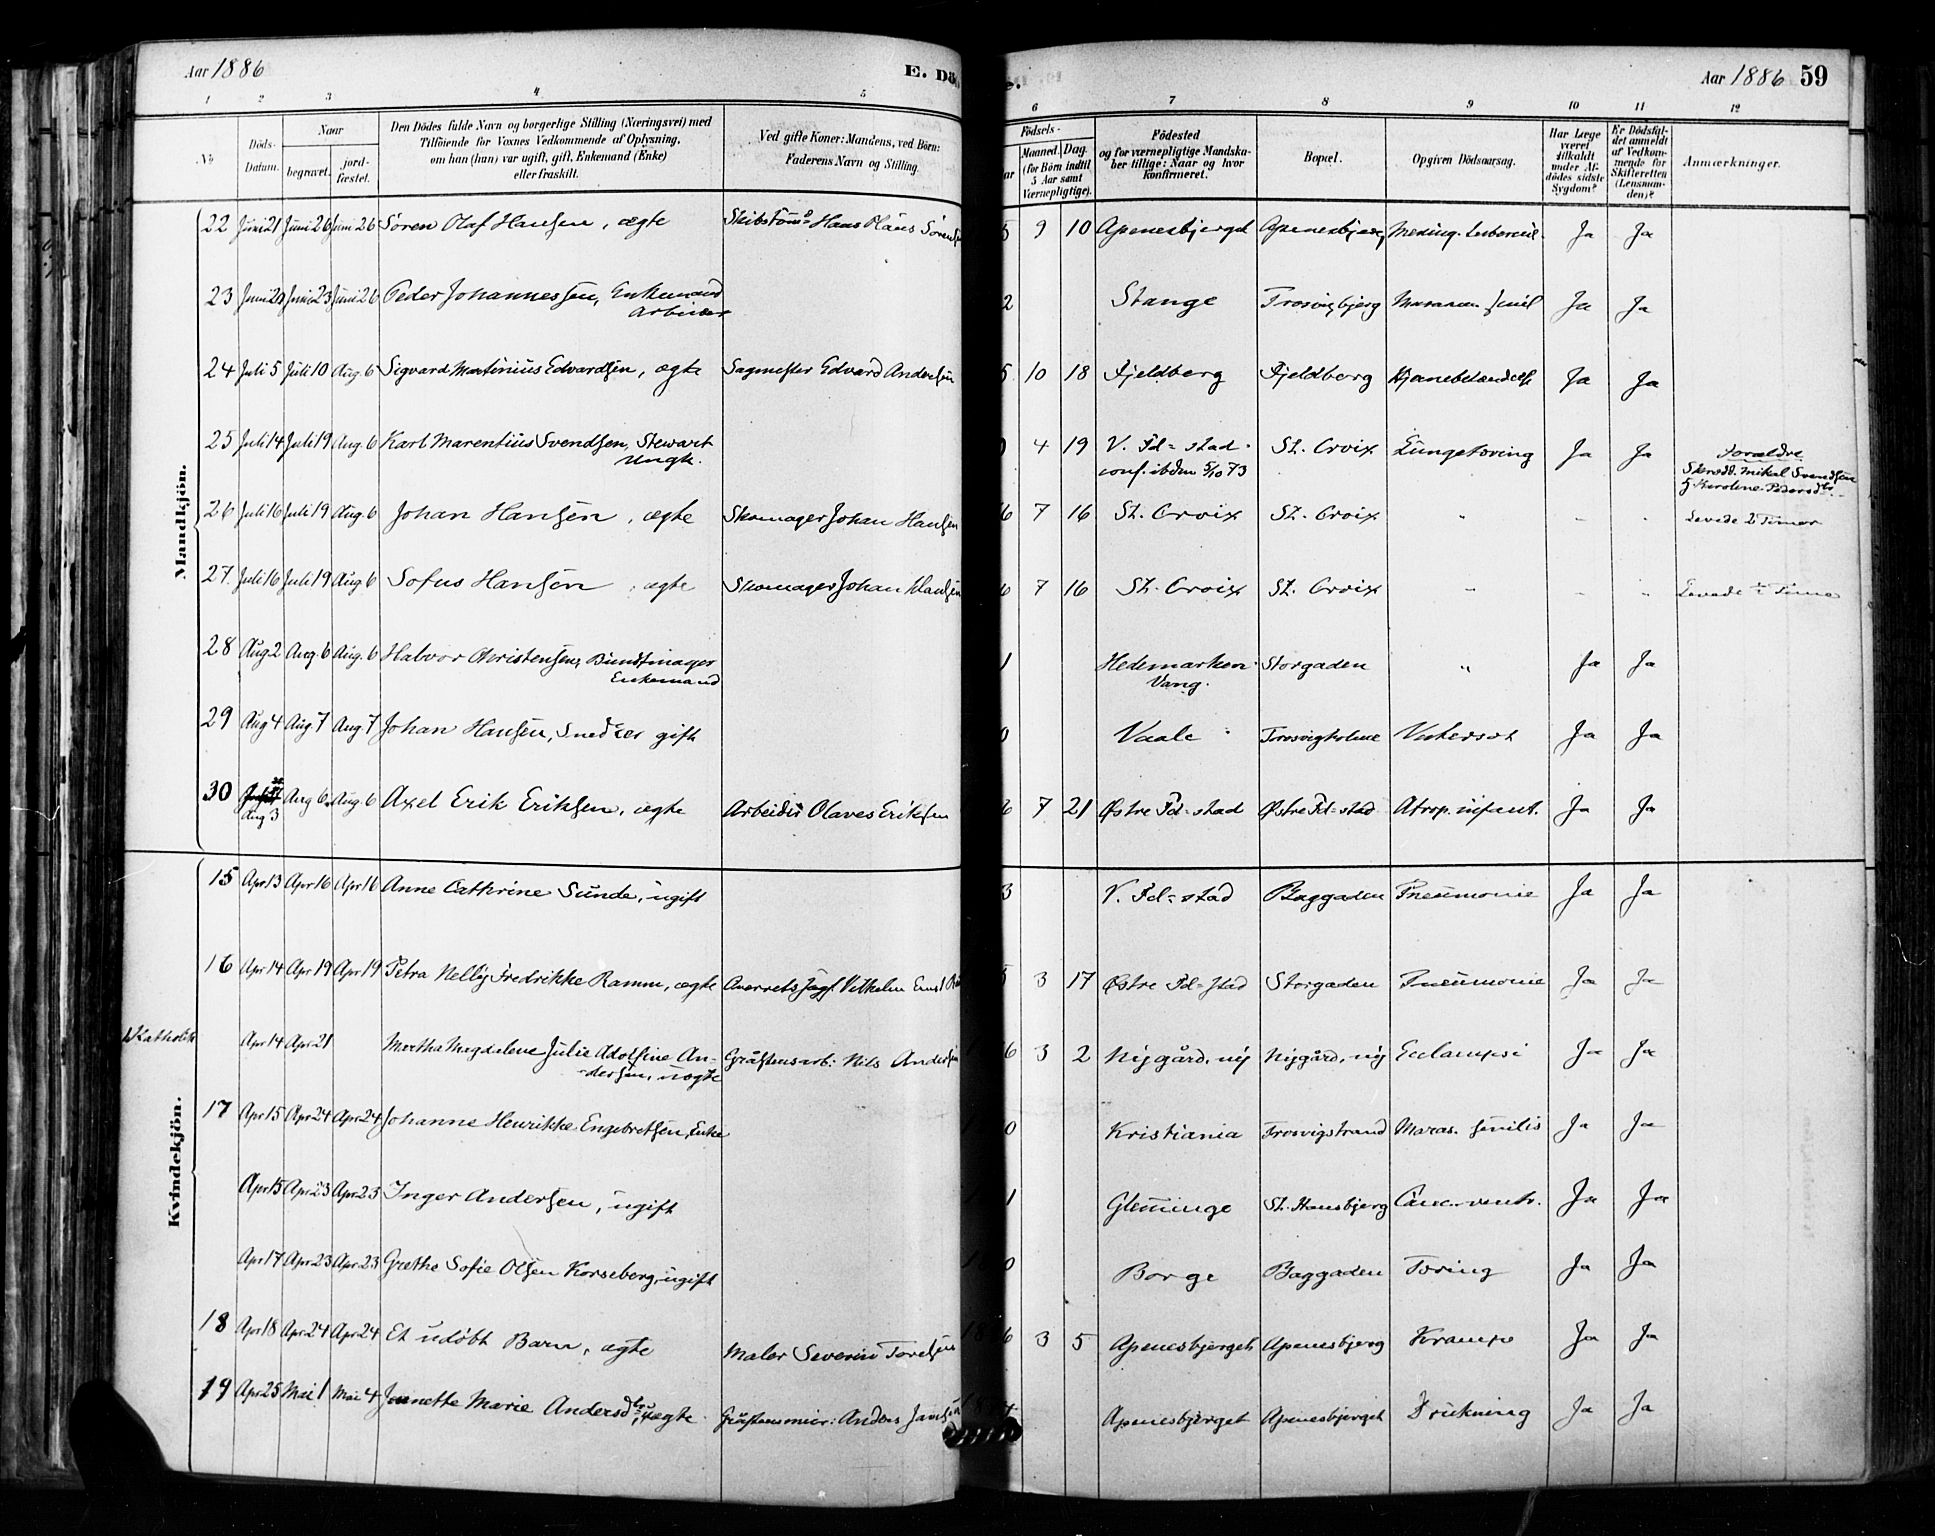 Aar 1886
E. Dö
Aar 1886 59
1 2 3 4 5 6 7 8 9 10 11 12
No
Döds-Datum.
Naar
begravet.
jord-fæstet.
Den Dödes fulde Navn og borgerlige Stilling (Næringsvei) med
Tilföiende for Voxnes Vedkommende af Oplysning,
om han (hun) var ugift, gift, Enkemand (Enke)
eller fraskilt.
Ved gifte Koner: Mandens, ved Börn:
Faderens Navn og Stilling.
Födsels-
Maaned. Dag.
(for Börn indtil
5 Aar samt
Værnepligtige).
Födested
og for værnepligtige Mandska-
ber tillige: Naar og hvor
konfirmeret.
Bopæl.
Opgiven Dödsaarsag.
Har Læge
været
tilkaldt
under Af-
dödes sidste
Sygdom?
Er Dödsfal-
det anmeldt
af Vedkom-
mende for
Skifteretten
(Lensman-
den)?
Anmærkninger.
Mandkjön.
22 Juni 21 Juni 26 Juni 26 Sören Olaf Hansen, ægte Hans Olaus 5 9 10 Apenesbjerget Apenesbjerg Mening. Ja Ja
23 Juni 23 Juni 26 Peder Johannessen, Enkemand 2 Stange Trosvigbjerg Ja Ja
Arbeider
24 Juli 5 Juli 10 Aug. 6 Sigvard Martinius Edvardsen, ægte Sagmester Edvard Andersen 5 10 18 Fjeldberg Fjeldberg Hjernebetændelse Ja Ja
25 Juli 14 Juli 19 Aug. 6 Karl Marentius Svendsen, Stewart 4 19 V. Fd=stad St. Croix Lungetæring Ja Ja Forældre
Ungk. conf. ibdm 5/10 73 Mikal Svendsen
26 Juli 16 Juli 19 Aug. 6 Johan Hansen, ægte Skomager Johan Hansen 6 7 16 St. Croix St. Croix " " " Levede 2 Timer
27. Juli 16 Juli 19 Aug. 6 Sofus Hansen, ægte Skomager Johan Hansen 6 7 16 St. Croix St. Croix " " " Levede ½ Time
28 Aug 2 Aug. 6 Aug. 6 Halvor Christensen, Bundtmager 1 Hedemarken Storgaden " Ja Ja
Enkemand Vang.
29 Aug 4 Aug 7 Aug. 7 Johan Hansen, Snedker gift 0 Vaale Trosvigholme Vatersot Ja Ja
30 Aug 3 Aug 6. Aug. 6 Axel Erik Eriksen, ægte Arbeider Olaves Eriksen 6 7 21 Østre Fd=stad Østre Fd=stad Atrop. infant. Ja Ja
Kvindekjön.
15 Apr 13 Apr 16 Apr 16 Anne Cathrine Sunde, ugift 3 V. Fd=stad Baggaden Pneumonie Ja Ja
16 Apr 14 Apr 19 Apr 19 Petra Nelly Fredrikke Ramm, ægte Vilhelm Ernst 5 3 17 Østre Fd=stad Storgaden Pneumonie Ja Ja
Katholik Apr 14 Apr 21 Martha Magdalene Julie Adolfine An- Gråstensarb: Nils Andersen 6 3 2 Nygård, ny Nygård, ny Eclampsi Ja Ja
dersen, uægte
17 Apr 15 Apr 24 Apr 24 Johanne Henrikke Engebretsen, Enke 0 Kristiania Trosvigstrand Maras. senilis Ja Ja
Apr 15 Apr 23 Apr 23 Inger Andersen, ugift 1 Glemminge St. Hansbjerg Canc. ventr. Ja Ja
Apr 17 Apr 23 Apr 23 Grethe Sofie Olsen Korseberg, ugift 0 Borge Baggaden Tæring Ja Ja
18 Apr 18 Apr 24 Apr 24 Et udøbt Barn, ægte Maler Severin 6 3 5 Apenesbjerget Apenesbjerg Krampe Ja Ja
19 Apr 25 Mai 1 Mai 4 Jeanette Marie Andersdtr, uægte. Gråstensmur: Anders Jansen Apenesbjerget Apenesbjerget Drukning Ja Ja